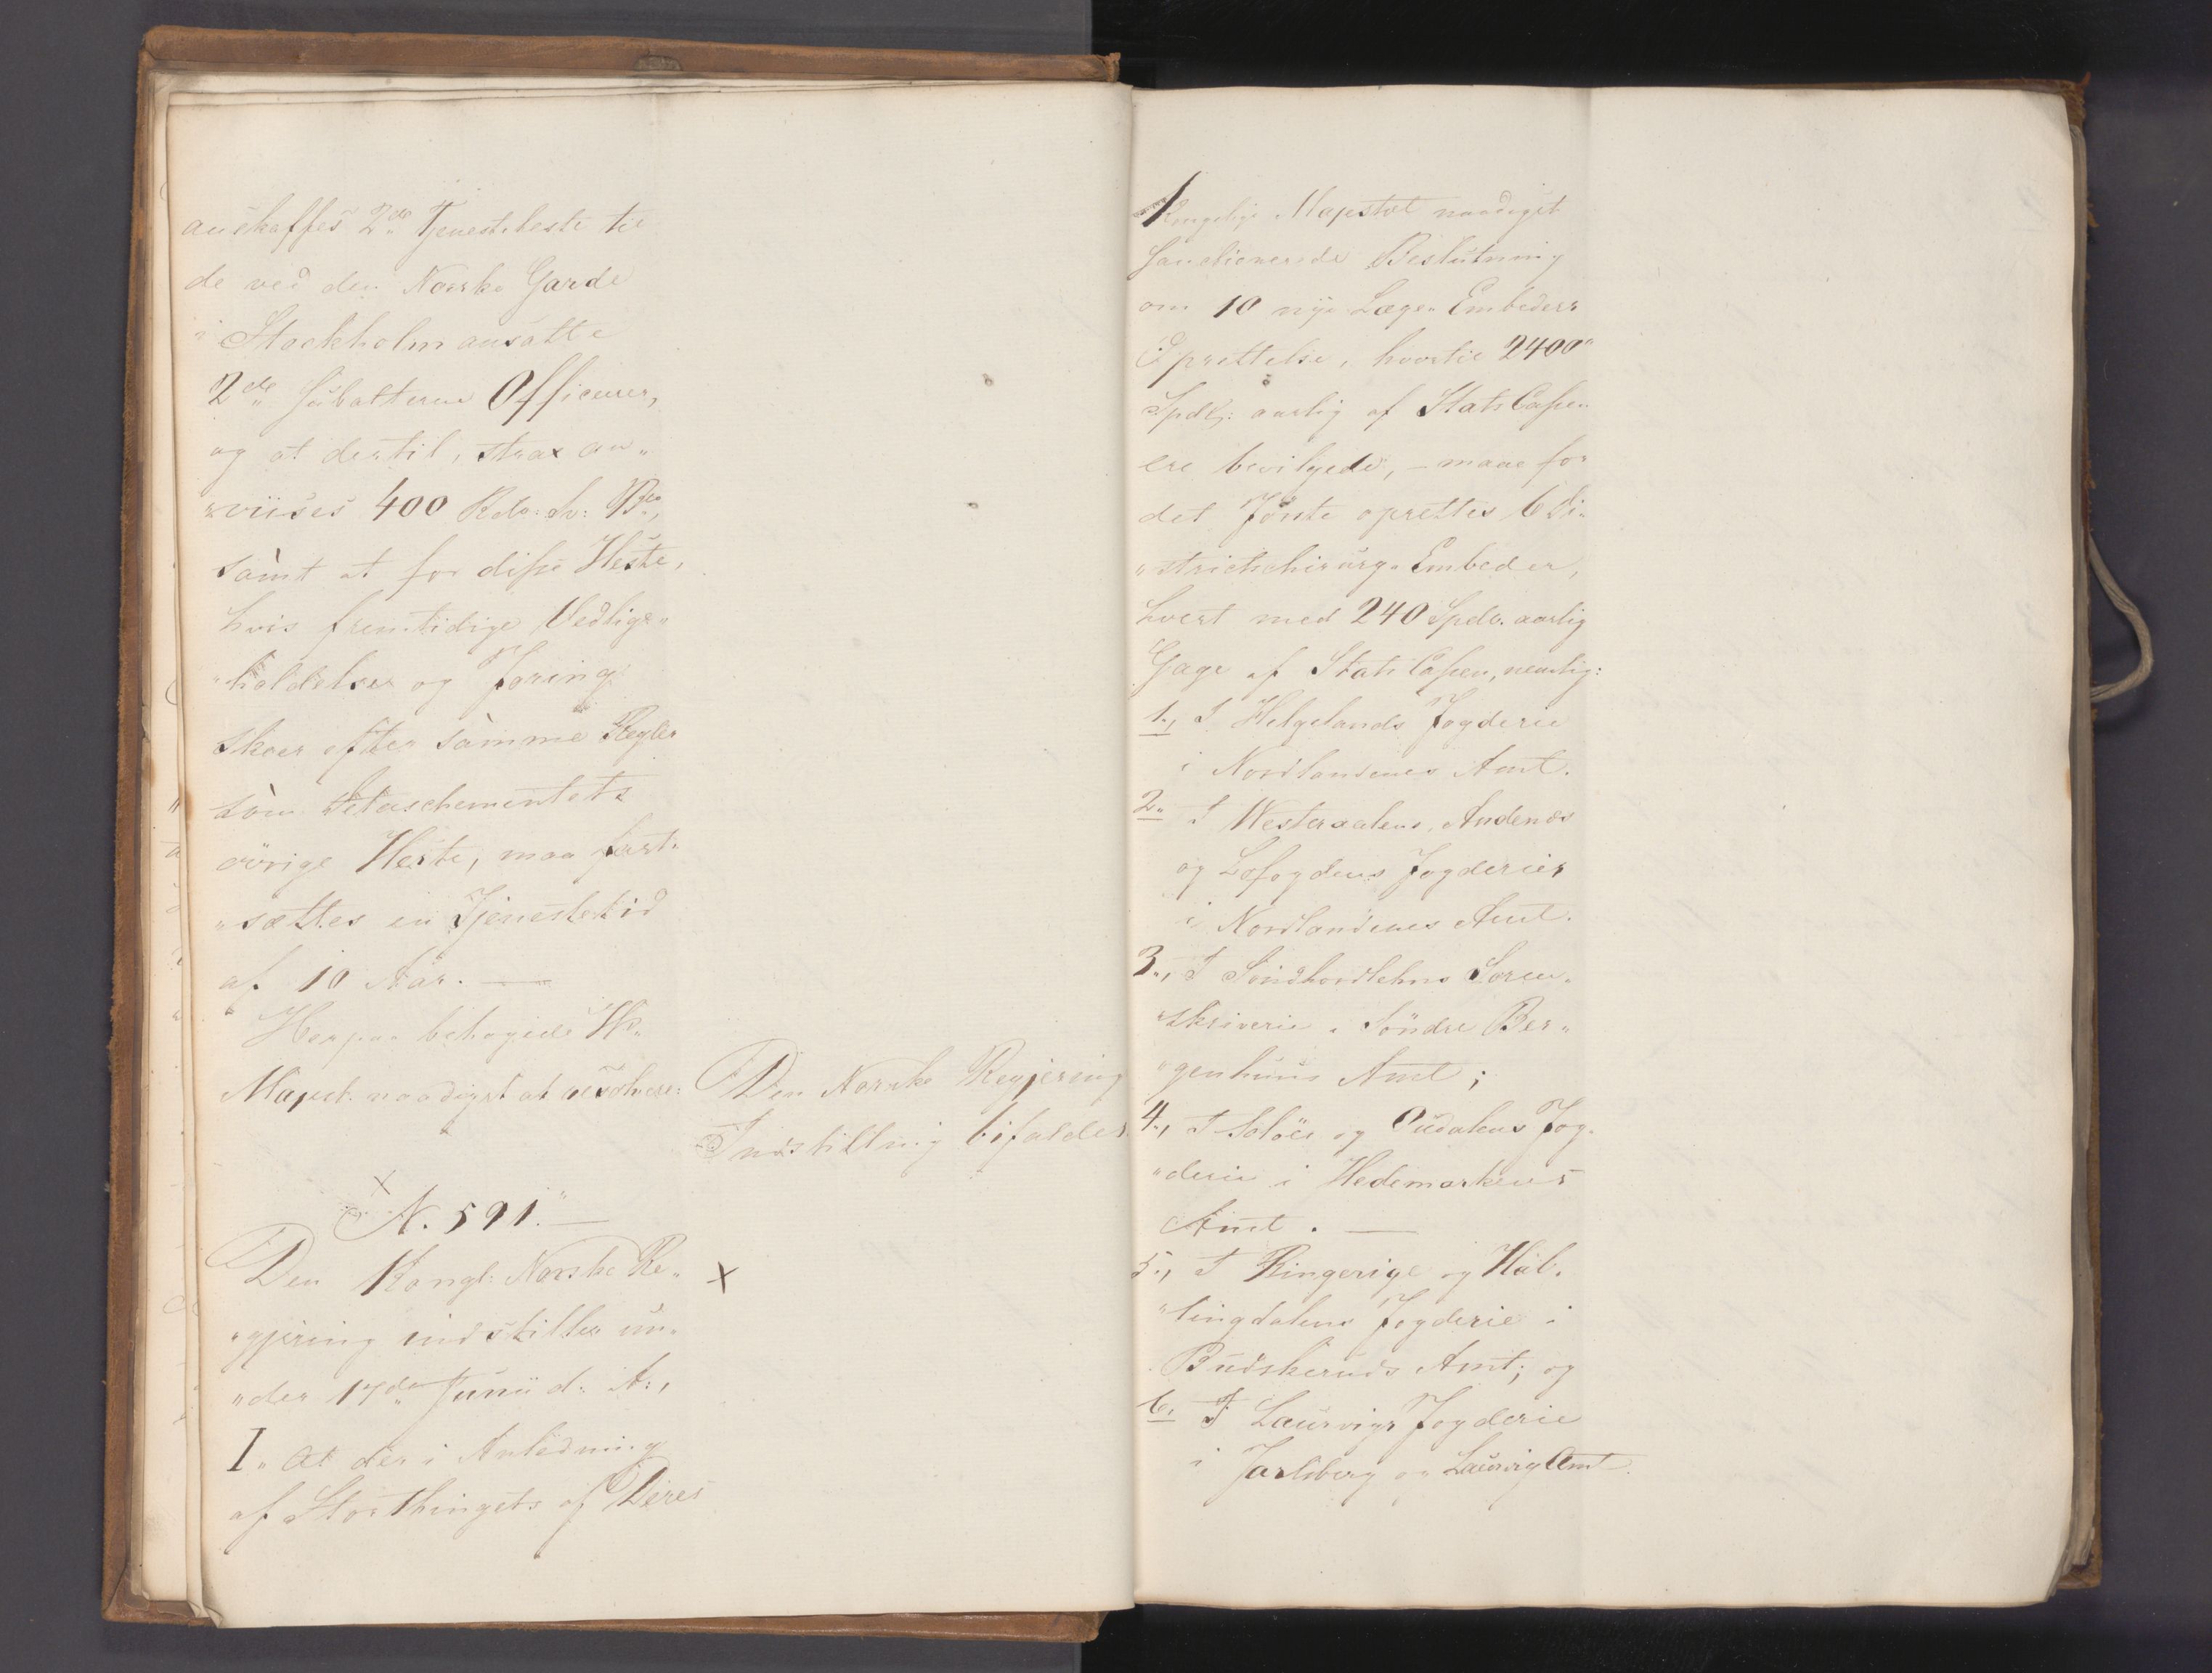 anskaffes 2de Tjenesteheste til
de ved den Norske Garde
i Stockholm ansatte
2de Subalterne Officerer,
og at dertil, strax an„
„viises 400 Rdr: Sv: Bco,
samt at for disse Heste,
hvis fremtidige Vedlige„
„holdelse og Foring
skeer efter samme Regler
som Detaschementets
øvrige Heste, maa fast„
„sættes en Tjenestetid
af 10 Aar. —
Herpaa behagede Hs.
Majest. naadigst at resolvere:
Den Norske Regjerings
Indstilling bifaldes.
N. 591. —
Den Kongl: Norske Re„
„gjering indstiller un„
„der 17de Junii d: A:,
I. At der i Anledning
af Storthingets af Deres
Kongelige Majestæt naadigst
sanctionerede Beslutning
om 10 nye Læge-Embeders
Oprettelse, hvortil 2400
Spdlr: aarlig af StatsCassen
ere bevilgede, – maae for
det Første oprettes 6 Di„
„strictschirurg-Embeder,
hvert med 240 Spdlr. aarlig
Gage af StatsCassen, nemlig:
1., I Helgelands Fogderie
i Nordlandenes Amt.
2. I Westeraalens, Andenæs
og Lofodens Fogderier
i Nordlandenes Amt.
3., I Søndhordlehns Soren„
„skriverie i Søndre Ber„
„genhuus Amt;
4., I Soløer og Oudalens Fog„
„derie i Hedemarkens
Amt. —
5., I Ringerige og Hal„
„lingdalens Fogderie i
Budskeruds Amt; og
6., I Laurvigs Fogderie
i Jarlsberg og Laurvig Amt.